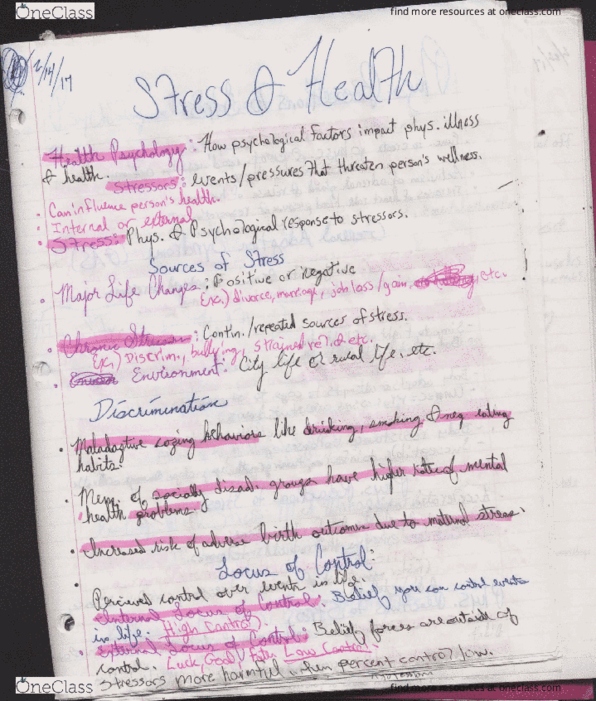 OneClass
find more resources at oneclass.com
2/14/17
Stress & Health
Health Psychology: How psychological factors impact phys. illness
& health. Stressors: events/pressures that threaten person's wellness.
• Can influence person's health.
• Internal or external
• Stress: Phys. & Psychological response to stressors.
Sources of Stress
• Major Life Changes: Positive or negative
Ex:) divorce, marriage, job loss/gain, etc.
• Chronic Stressors: Contin./repeated sources of stress.
Ex:) Discrim, bullying, strained rel. & etc.
• Environment: City life or rural life, etc.
Discrimination
• Maladaptive coping behaviors like drinking, smoking & neg eating
habits.
• Mem. of socially disad. groups have higher rates of mental
health problems
• Increased risk of adverse birth outcomes due to maternal stress.
Locus of Control:
Percieved control over events in life.
• Internal Locus of Control: Belief you can control events
in life. High Control.
• External Locus of Control: Belief forces are outside of
control. Luck, God, Fate Low Control
Stressors more harmful when percent control low.
OneClass
find more resources at oneclass.com